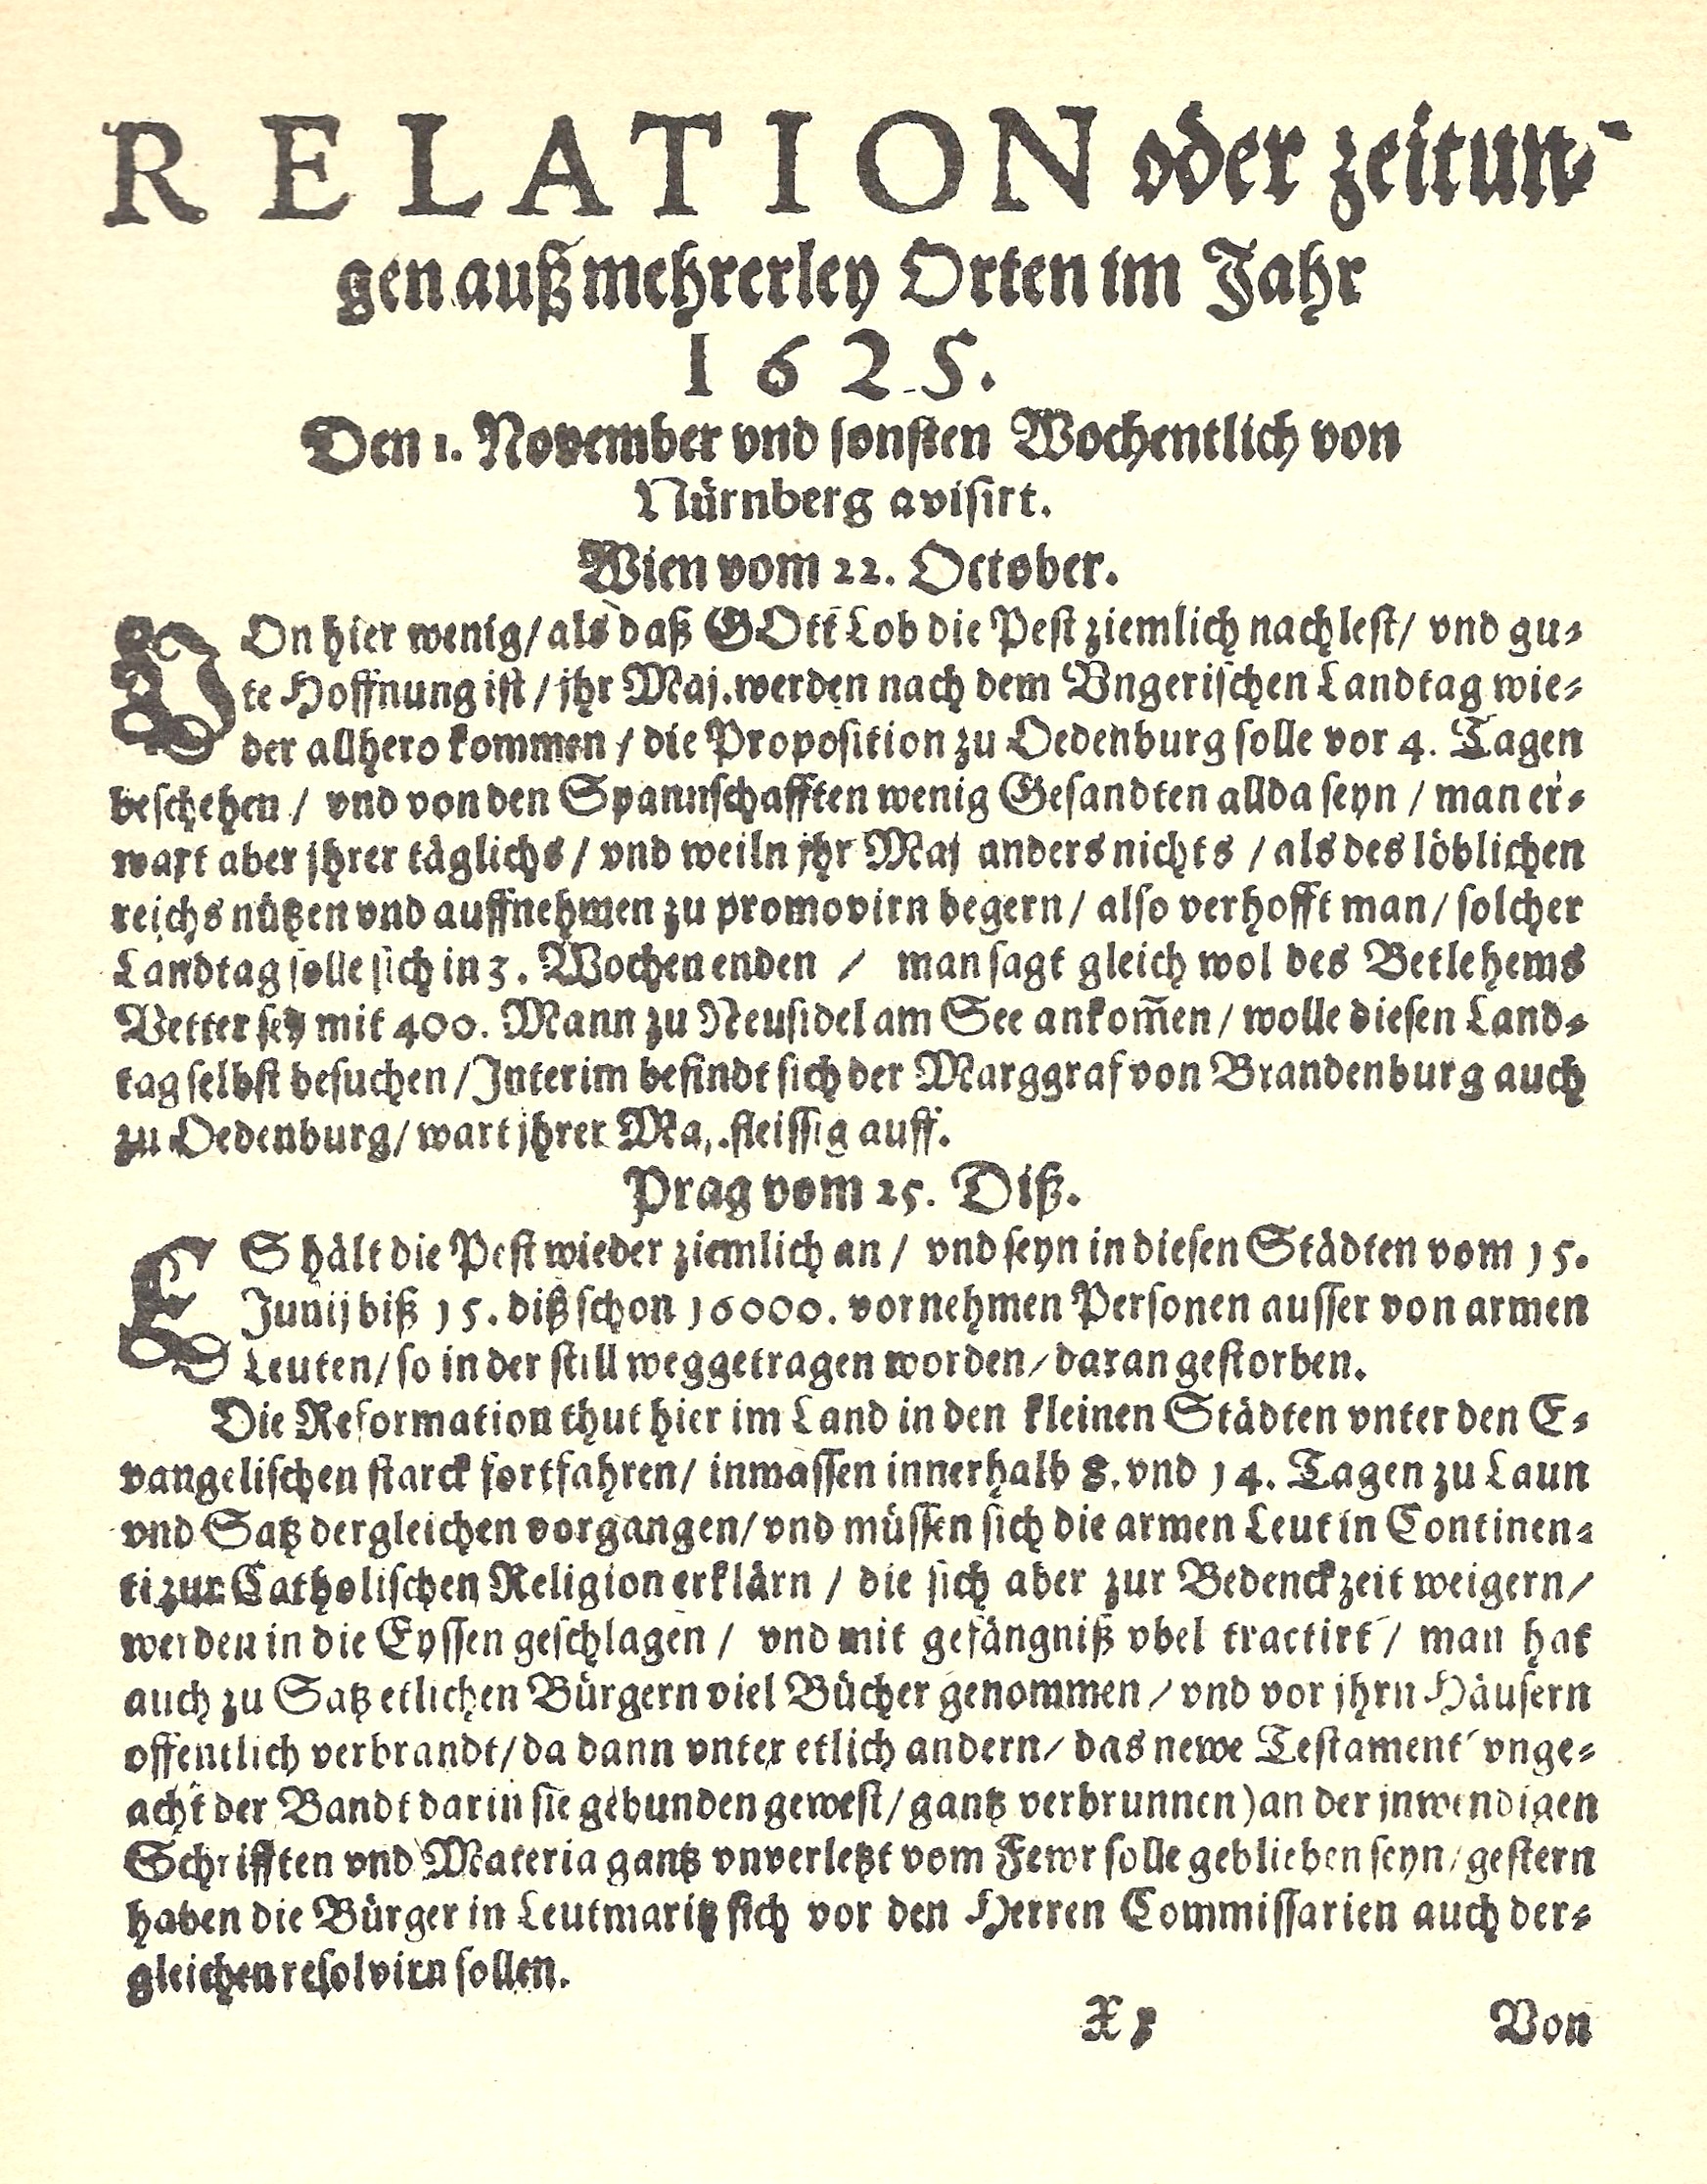 RELATION oder zeitun-
gen auß mehrerley Orten im Jahr
1625.
Den 1. November vnd sonsten Wochentlich von
Nürnberg avisirt.
Wien vom 22. October.
VOn hier wenig/ als daß GOtt Lob die Pest ziemlich nachlest/ vnd gu-
te Hoffnung ist / jhr Maj. werden nach dem Vngerischen Landtag wie-
der allhero kommen / die Proposition zu Oedenburg solle vor 4. Tagen
beschehen / vnd von den Spannschafften wenig Gesandten allda seyn / man er-
wart aber jhrer täglichs / vnd weiln jhr Maj anders nichts / als des löblichen
reichs nützen vnd auffnehmen zu promovirn begern / also verhofft man / solcher
Landtag solle sich in 3. Wochen enden / man sagt gleich wol des Betlehems
Vetter sey mit 400. Mann zu Neusidel am See ankom̃en / wolle diesen Land-
tag selbst besuchen / Interim befindt sich der Marggraf von Brandenburg auch
zu Oedenburg/ wart jhrer Maj. fleissig auff.
Prag vom 25. Diß.
ES hält die Pest wieder ziemlich an / vnd seyn in diesen Städten vom 15.
Junij biß 15. diß schon 16000. vornehmen Personen ausser von armen
Leuten/ so in der still weggetragen worden/ daran gestorben.
Die Reformation thut hier im Land in den kleinen Städten vnter den E-
vangelischen starck fortfahren/ inmassen innerhalb 8. vnd 14. Tagen zu Laun
vnd Satz dergleichen vorgangen/ vnd müssen sich die armen Leut in Continen-
ti zur Catholischen Religion erklärn / die sich aber zur Bedenckzeit weigern/
werden in die Eyssen geschlagen / vnd mit gefängniß vbel tractirt / man hat
auch zu Satz etlichen Bürgern viel Bücher genommen / vnd vor jhrn Häusern
offentlich verbrandt/ da dann vnter etlich andern/ das newe Testament vnge-
acht der Bandt darin sie gebunden gewest/ gantz verbrunnen) an der jnwendigen
Schrifften vnd Materia gantz vnverletzt vom Fewr solle geblieben seyn/ gestern
haben die Bürger in Leutmaritz sich vor den Herren Commissarien auch der-
gleichen resolvirn sollen.
Von